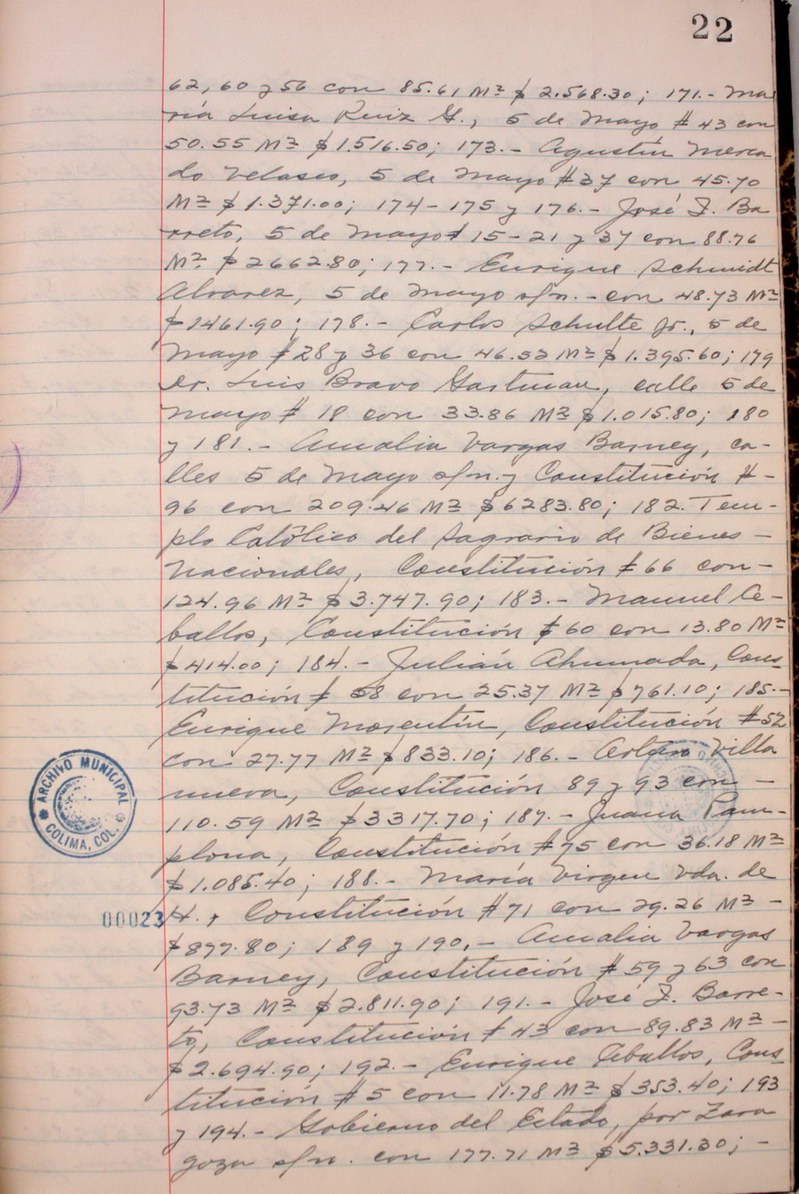 22
62, 60 y 56 con 85.61 M² $ 2.568.30; 171.- Ma
ría Luisa Ruiz G., 5 de Mayo # 43 con
50.55 M² $1.516.50; 173.- Agustín Merca
do Velasco, 5 de Mayo #37 con 45.70
M² $1.371.00; 174-175 y 176.- José I. Ba
rreto, 5 de Mayo # 15-21 y 37 con 88.76
M² $266280; 177.- Enrique Schmidt
Alvarez, 5 de Mayo s/n.- con 48.73 M²
$1461.90; 178.- Carlos Schulte Jr., 5 de
Mayo #28 y 36 con 46.52 M² $1.395.60; 179
Dr. Luis Bravo Gartman, calle 5 de
Mayo # 18 con 33.86 M² $1.015.80; 180
y 181.- Amalia Vargas Barney, ca-
lles 5 de Mayo s/n. y Constitución #-
96 con 209.46 M² $6283.80; 182. Tem-
plo Católico del Sagrario de Bienes-
Nacionales, Constitución #66 con-
124.96 M² $3.747.90; 183.- Manuel Ce-
ballos, Constitución #60 con 13.80 M²
$414.00; 184.- Julián Ahumada, Cons-
titución # 58 con 25.37 M² $761.10; 185.-
Enrique Morentín, Constitución #52
con 27.77 M² $833.10; 186.- Arturo Villa
nueva, Constitución 89 y 93 con-
110.59 M² $3317.70; 187.- Juana Pam-
plona, Constitución #75 con 36.18 M²
$1.085.40; 188.- María Virgen Vda. de
H., Constitución #71 con 29.26 M²-
$877.80; 189 y 190.- Amalia Vargas
Barney, Constitución #59 y 63 con
93.73 M² $2.811.90; 191.- José I. Barre-
to, Constitución # 43 con 89.83 M²-
$2.694.90; 192.- Enrique Ceballos, Cons
titución #5 con 11.78 M² $353.40; 193
y 194.- Gobierno del Estado, por Zara
goza s/n. con 177.71 M² $5.331.30; -
ARCHIVO MUNICIPAL
COLIMA, COL.
00023